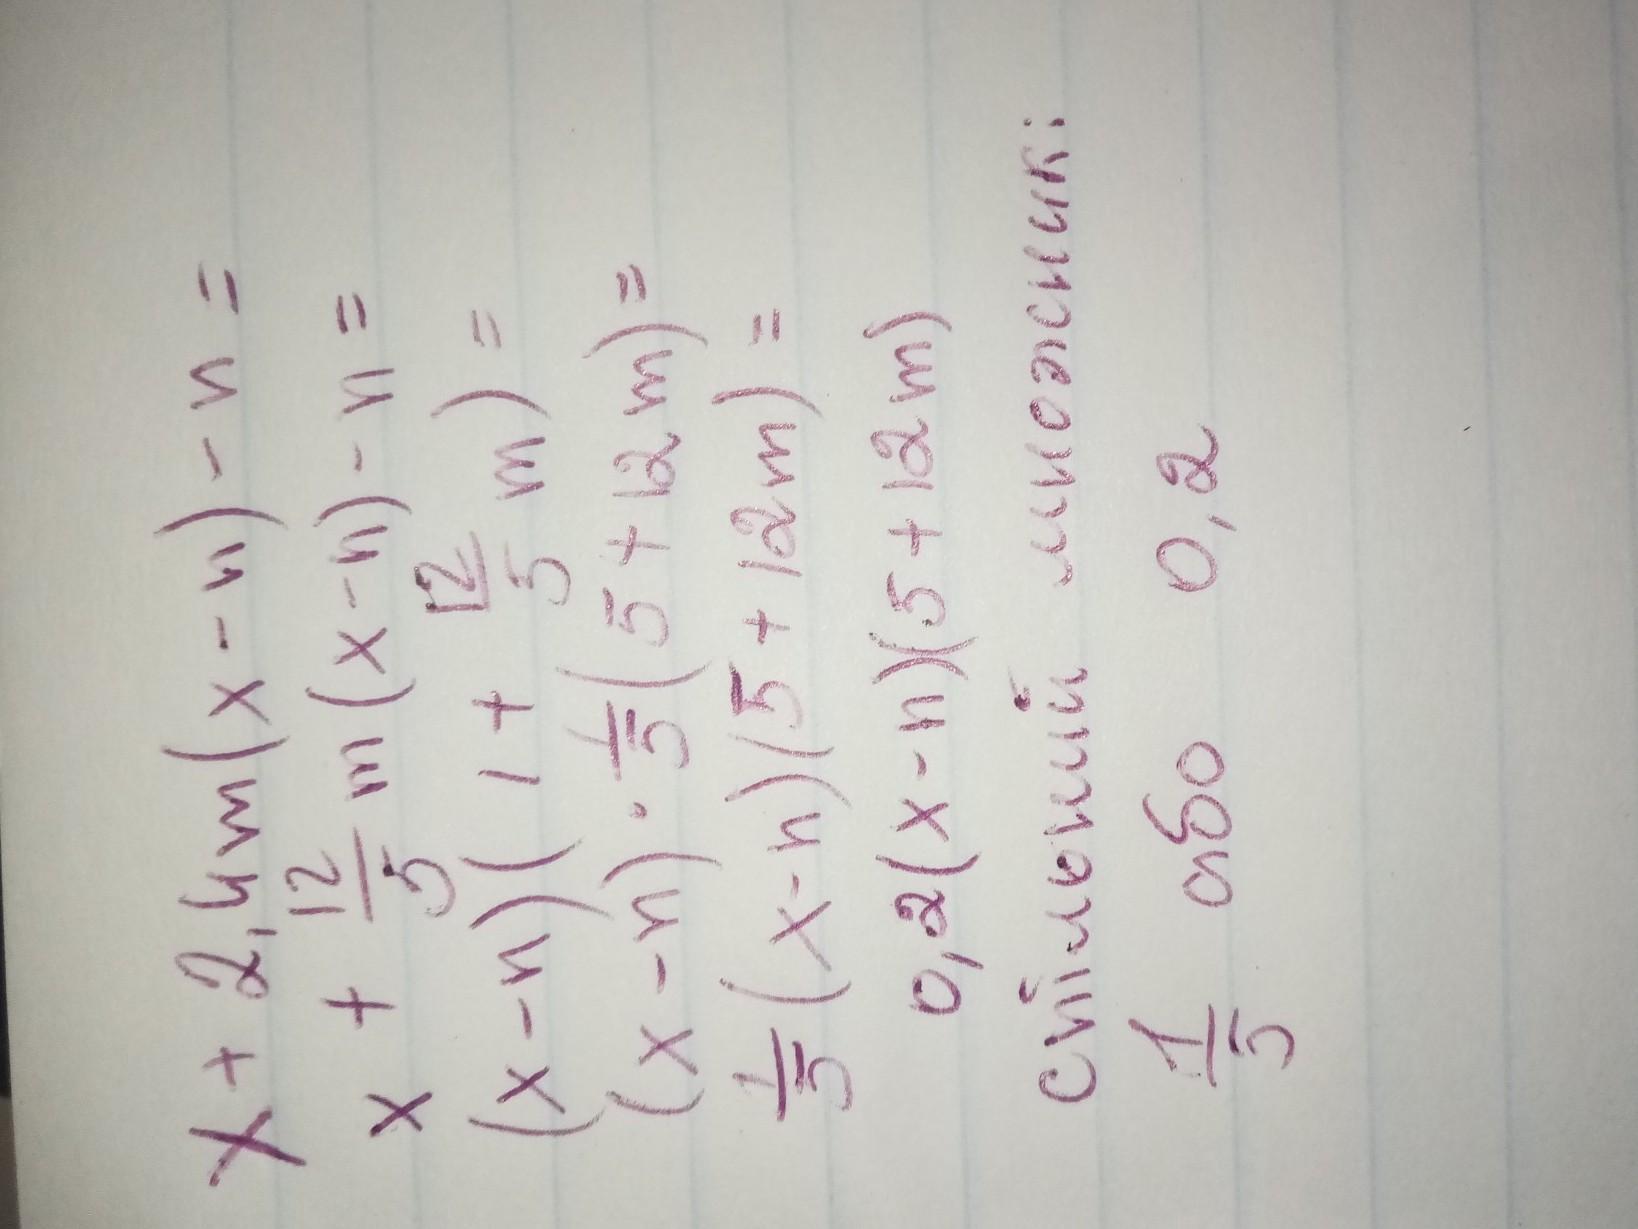 x + 2,4m(x - n) - n =
x + 12/5 m(x - n) - n =
(x - n)(1 + 12/5 m) =
(x - n) · 1/5 (5 + 12m) =
1/5 (x - n)(5 + 12m) =
0,2(x - n)(5 + 12m)
Спільний множник:
1/5 або 0,2